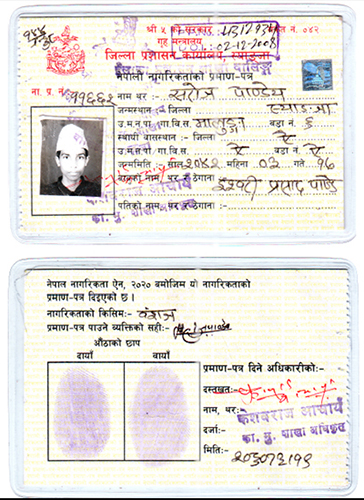 श्री ५ को सरकार
गृह मन्त्रालय
02-12-2008
जिल्ला प्रशासन कार्यालय, स्याङ्जा
नेपाली नागरिकताको प्रमाण-पत्र
ना. प्र. नं. ११६६२ नाम थर:- सरोज पाण्डेय
जन्मस्थान:- जिल्ला स्याङ्जा
उ.म.न.पा./गा.वि.स. आलुङ्गा वडा नं. ६
स्थायी बासस्थान:- जिल्ला ऐ
उ.म.न.पा./गा.वि.स. ऐ वडा नं. ऐ
जन्ममिति:- साल २०४२ महिना ०३ गते १६
बाबुको नाम थर र ठेगाना ईश्वरी प्रसाद पाण्डे
पतिको नाम थर र ठेगाना:-
का. मु. शाखा अधिकृत
नेपाल नागरिकता ऐन, २०२० बमोजिम यो नागरिकताको
प्रमाण-पत्र दिइएको छ ।
नागरिकताको किसिम:- वंशज
प्रमाण-पत्र पाउने व्यक्तिको सही:-
औंठाको छाप
दायाँ बायाँ
प्रमाण-पत्र दिने अधिकारीको:-
दस्तखत:-
नाम, थर: केशवराज आचार्य
दर्जा:- का. मु. शाखा अधिकृत
मिति:-